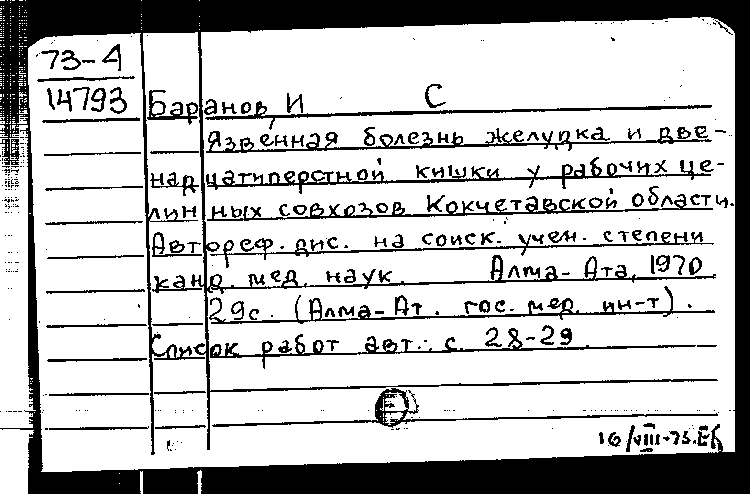 73-4
14793
Баранов, И С
Язвенная болезнь желудка и две-
надцатиперстной кишки у рабочих це-
линных совхозов Кокчетавской области.
Автореф. дис. на соиск. учен. степени
канд. мед. наук. Алма-Ата, 1970
29с. (Алма-Ат. гос. мед. ин-т).
Список работ авт.: с. 28-29.
16/VIII-73.